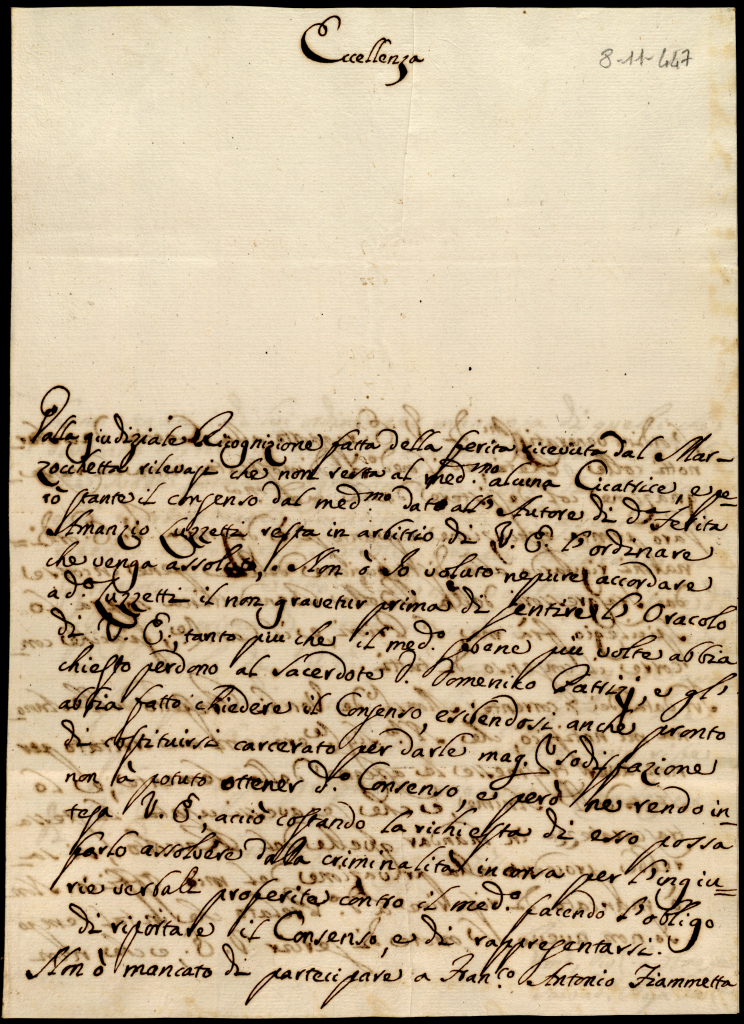 Eccellenza
8-11-447
Dalla giudiziale Ricognizione fatta della ferita ricevuta dal Mar-
zocchetta rilevasi che non resta al med.mo alcuna Cicatrice, e pe-
rò stante il consenso dal med.mo dato all' Autore di d.a ferita
Amanzio Luzzetti resta in arbitrio di V. E. l'ordinare
che venga assoluto. Non ò Io voluto nepure accordare
a d.o Luzzetti il non gravetur prima di sentire l'Oracolo
di V. E., tanto più che il med.o sebene più volte abbia
chiesto perdono al Sacerdote D. Domeniko Patrizj, e gl'
abbia fatto chiedere il Consenso, esibendosi anche pronto
di costituirsi carcerato per darle mag.r sodisfazione
non à potuto ottener d.o Consenso, e però ne rendo in-
tesa V. E., acciò costando la richiesta di esso possa
farlo assolvere dalla criminalità incorsa per l'ingiu-
rie verbali proferite contro il med.o facendo l'obligo
di riportare il Consenso, e di rappresentarsi.
Non ò mancato di partecipare a Fran.co Antonio Fiammetta